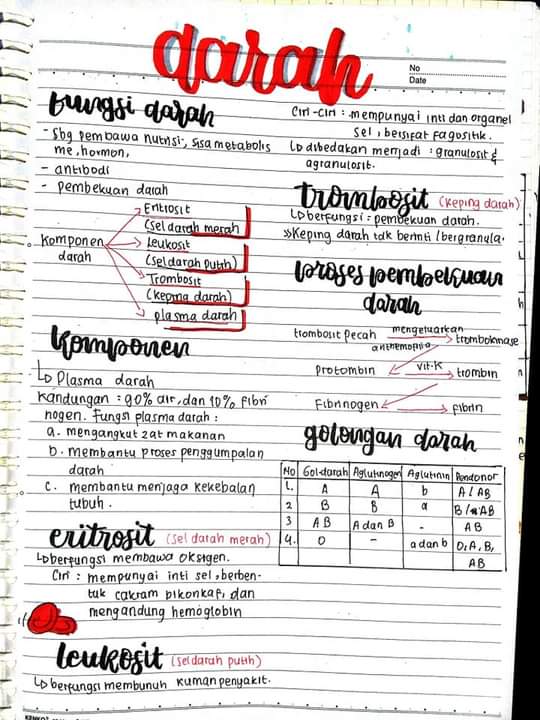 darah
No
Date
Fungsi darah
- Sbg pembawa nutrisi, sisa metabolis
me, hormon,
- antibodi
- pembekuan darah
Komponen
darah
Eritrosit
(sel darah merah)
Leukosit
(sel darah putih)
Trombosit
(keping darah)
plasma darah
Komponen
↳ Plasma darah
Kandungan : 90% air, dan 10% fibri
nogen. Fungsi plasma darah :
a. mengangkut zat makanan
b. membantu proses penggumpalan
darah
c. membantu menjaga kekebalan
tubuh.
eritrosit (sel darah merah)
↳ berfungsi membawa oksigen.
Ciri : mempunyai inti sel, berben-
tuk cakram bikonkaf, dan
mengandung hemoglobin
leukosit (sel darah putih)
↳ berfungsi membunuh kuman penyakit.
Ciri-ciri : mempunyai inti dan organel
sel, bersifat fagositik.
↳ dibedakan menjadi : granulosit &
agranulosit.
trombosit (keping darah)
↳ berfungsi : pembekuan darah.
»Keping darah tdk berinti / bergranula.
proses pembekuan
darah
trombosit pecah mengeluarkan trombokinase
anthemophia
protombin vit-K trombin
Fibrinogen fibrin
golongan darah
No Goldarah Aglutinogen Aglutinin Pendonor
1. A A b A / AB
2 B B a B / AB
3 AB A dan B - AB
4. O - a dan b O, A, B,
AB